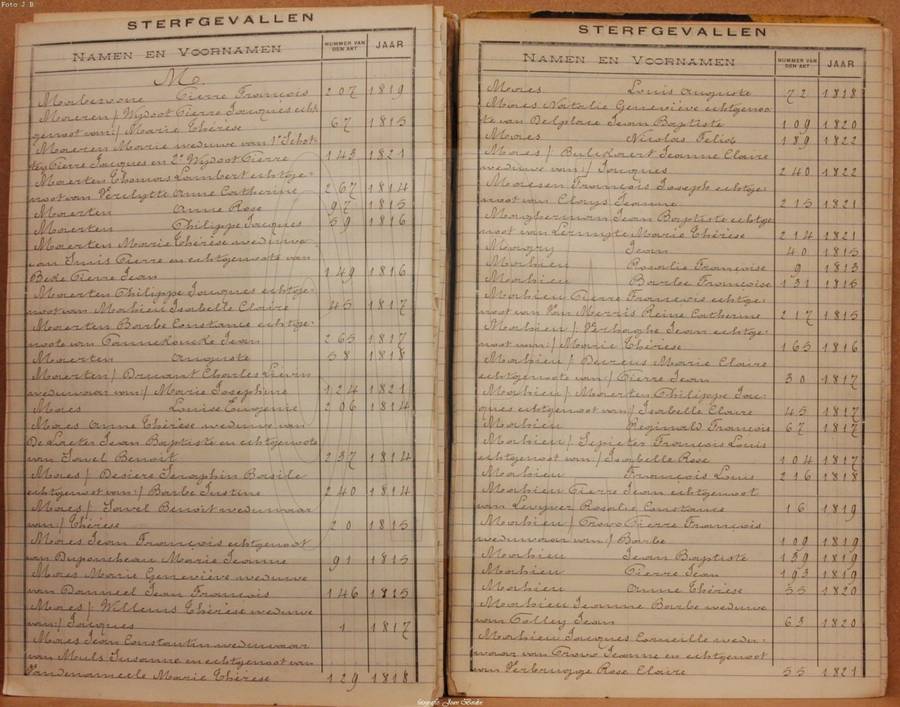 Foto J B
STERFGEVALLEN
NAMEN EN VOORNAMEN NUMMER VAN DEN AKT JAAR
M
Maeten Pierre François 207 1819
Maeren / Wydoot Pierre Jacques echt-
genoot van / Marie Thérèse 67 1815
Maerten Marie weduwe van 1° Schot-
ten Pierre Jacques en 2° Wydoot Pierre 143 1821
Maerten Thomas Lambert echtge-
noot van Verslytte Anne Catherine 267 1814
Maerten Anne Rose 97 1815
Maerten Philippe Jacques 59 1816
Maerten Marie Thérèse weduwe
van Pierre en echtgenoote van
Bede Pierre Jean 149 1816
Maerten Philippe Jacques echtge-
noot van Mahieu Isabelle Claire 45 1817
Maerten Barbe Constance echtge-
noote van Jean 265 1817
Maerten Auguste 58 1818
Maerten / Druant Charles Livin
weduwaar van / Marie Josephine 124 1821
Maes Louise Eugenie 206 1814
Maes Anne Thérèse weduwe van
De Laeter Jean Baptiste en echtgenoote
van Savel Benoit 237 1814
Maes / Desiere Seraphin Basile
echtgenoot van / Barbe Justine 240 1814
Maes / Savel Benoit weduwaar
van / Thérèse 20 1815
Maes Jean François echtgenoot
van Duponcheau Marie Jeanne 91 1815
Maes Marie Geneviève weduwe
van Danneel Jean François 146 1815
Maes / Willems Thérèse weduwe
van / Jacques 1 1817
Maes Jean Constantin weduwaar
van Meuls Susanne en echtgenoot van
Vandenameele Marie Thérèse 129 1818
STERFGEVALLEN
NAMEN EN VOORNAMEN NUMMER VAN DEN AKT JAAR
Maes Louis Auguste 72 1818
Maes Natalie Geneviève echtgenoo-
te van Delplace Jean Baptiste 109 1820
Maes Nicolas Felix 189 1822
Maes / Bulckaert Jeanne Claire
weduwe van / Jacques 240 1822
Maesen François Joseph echtge-
noot van Clarys Jeanne 215 1821
Maegherman Jean Baptiste echtge-
noot van Lermyte Marie Thérèse 214 1821
Magry Jean 40 1815
Mahieu Rosalie Françoise 9 1813
Mahieu Barbe Françoise 131 1815
Mahieu Pierre François echtge-
noot van Van Merris Reine Catherine 217 1815
Mahieu / Verhaghe Jean echtge-
noot van / Marie Thérèse 165 1816
Mahieu / Dureus Marie Claire
echtgenoote van / Pierre Jean 30 1817
Mahieu / Maerten Philippe Jac-
ques echtgenoot van / Isabelle Claire 45 1817
Mahieu Reginald François 67 1817
Mahieu / Lepieter François Louis
echtgenoot van / Isabelle Rose 104 1817
Mahieu François Louis 216 1818
Mahieu Pierre Jean echtgenoot
van Rosalie Constance 16 1819
Mahieu / Crovo Pierre François
weduwaar van / Barbe 109 1819
Mahieu Jean Baptiste 139 1819
Mahieu Pierre Jean 193 1819
Mahieu Anne Thérèse 55 1820
Mahieu Jeanne Barbe weduwe
van Talley Jean 63 1820
Mahieu Jacques Corneille wedu-
waar van Crovo Jeanne en echtgenoot
van Verbrugge Rose Claire 55 1821